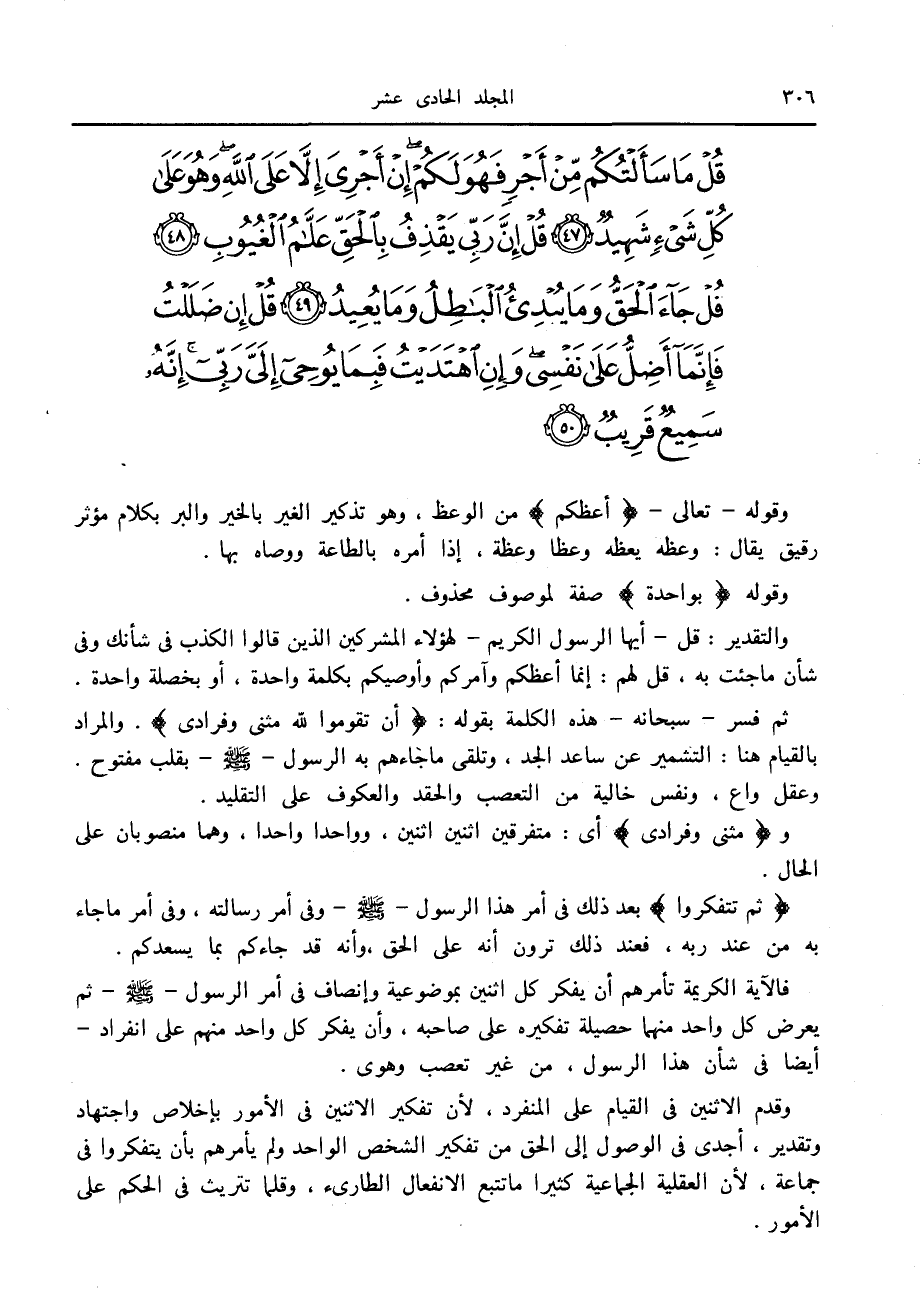 ٣٠٦ المجلد الحادى عشر
قُلْ مَا سَأَلْتُكُم مِّنْ أَجْرٍ فَهُوَ لَكُمْ ۖ إِنْ أَجْرِىَ إِلَّا عَلَى ٱللَّهِ ۖ وَهُوَ عَلَىٰ
كُلِّ شَىْءٍ شَهِيدٌ ﴿٤٧﴾ قُلْ إِنَّ رَبِّى يَقْذِفُ بِٱلْحَقِّ عَلَّٰمُ ٱلْغُيُوبِ ﴿٤٨﴾
قُلْ جَآءَ ٱلْحَقُّ وَمَا يُبْدِئُ ٱلْبَٰطِلُ وَمَا يُعِيدُ ﴿٤٩﴾ قُلْ إِن ضَلَلْتُ
فَإِنَّمَآ أَضِلُّ عَلَىٰ نَفْسِى ۖ وَإِنِ ٱهْتَدَيْتُ فَبِمَا يُوحِىٓ إِلَىَّ رَبِّىٓ ۚ إِنَّهُۥ
سَمِيعٌ قَرِيبٌ ﴿٥٠﴾
وقوله - تعالى - ﴿ أعظكم ﴾ من الوعظ ، وهو تذكير الغير بالخير والبر بكلام مؤثر
رقيق يقال : وعظه يعظه وعظا وعظة ، إذا أمره بالطاعة ووصاه بها .
وقوله ﴿ بواحدة ﴾ صفة لموصوف محذوف .
والتقدير : قل - أيها الرسول الكريم - لهؤلاء المشركين الذين قالوا الكذب فى شأنك وفى
شأن ماجئت به ، قل لهم : إنما أعظكم وآمركم وأوصيكم بكلمة واحدة ، أو بخصلة واحدة .
ثم فسر - سبحانه - هذه الكلمة بقوله : ﴿ أن تقوموا لله مثنى وفرادى ﴾ . والمراد
بالقيام هنا : التشمير عن ساعد الجد ، وتلقى ماجاءهم به الرسول - ﷺ - بقلب مفتوح .
وعقل واع ، ونفس خالية من التعصب والحقد والعكوف على التقليد .
و ﴿ مثنى وفرادى ﴾ أى : متفرقين اثنين اثنين ، وواحدا واحدا ، وهما منصوبان على
الحال .
﴿ ثم تتفكروا ﴾ بعد ذلك فى أمر هذا الرسول - ﷺ - وفى أمر رسالته ، وفى أمر ماجاء
به من عند ربه ، فعند ذلك ترون أنه على الحق ،وأنه قد جاءكم بما يسعدكم .
فالآية الكريمة تأمرهم أن يفكر كل اثنين بموضوعية وإنصاف فى أمر الرسول - ﷺ - ثم
يعرض كل واحد منهما حصيلة تفكيره على صاحبه ، وأن يفكر كل واحد منهم على انفراد -
أيضا فى شأن هذا الرسول ، من غير تعصب وهوى .
وقدم الاثنين فى القيام على المنفرد ، لأن تفكير الاثنين فى الأمور بإخلاص واجتهاد
وتقدير ، أجدى فى الوصول إلى الحق من تفكير الشخص الواحد ولم يأمرهم بأن يتفكروا فى
جماعة ، لأن العقلية الجماعية كثيرا ماتتبع الانفعال الطارىء ، وقلما تتريث فى الحكم على
الأمور .